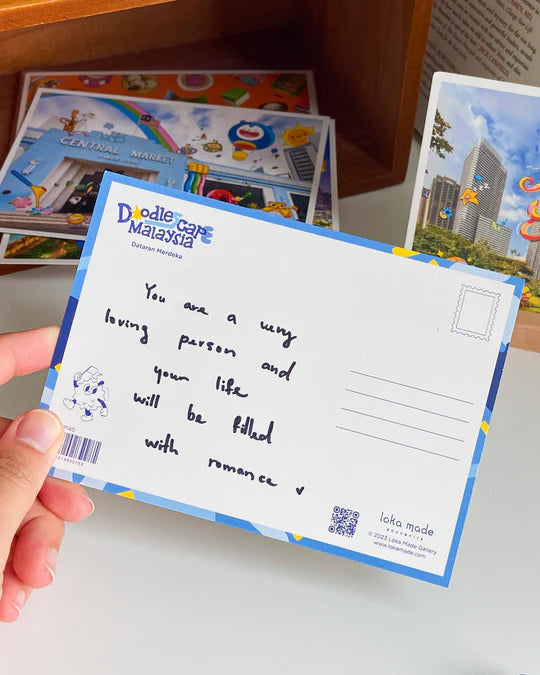 CENTRAL MARKET
Doodle Cape
Malaysia
Dataran Merdeka
You are a very
loving person and
your life
will be filled
with romance
loka made
souvenirs
© 2023 Loka Made Gallery
www.lokamade.com